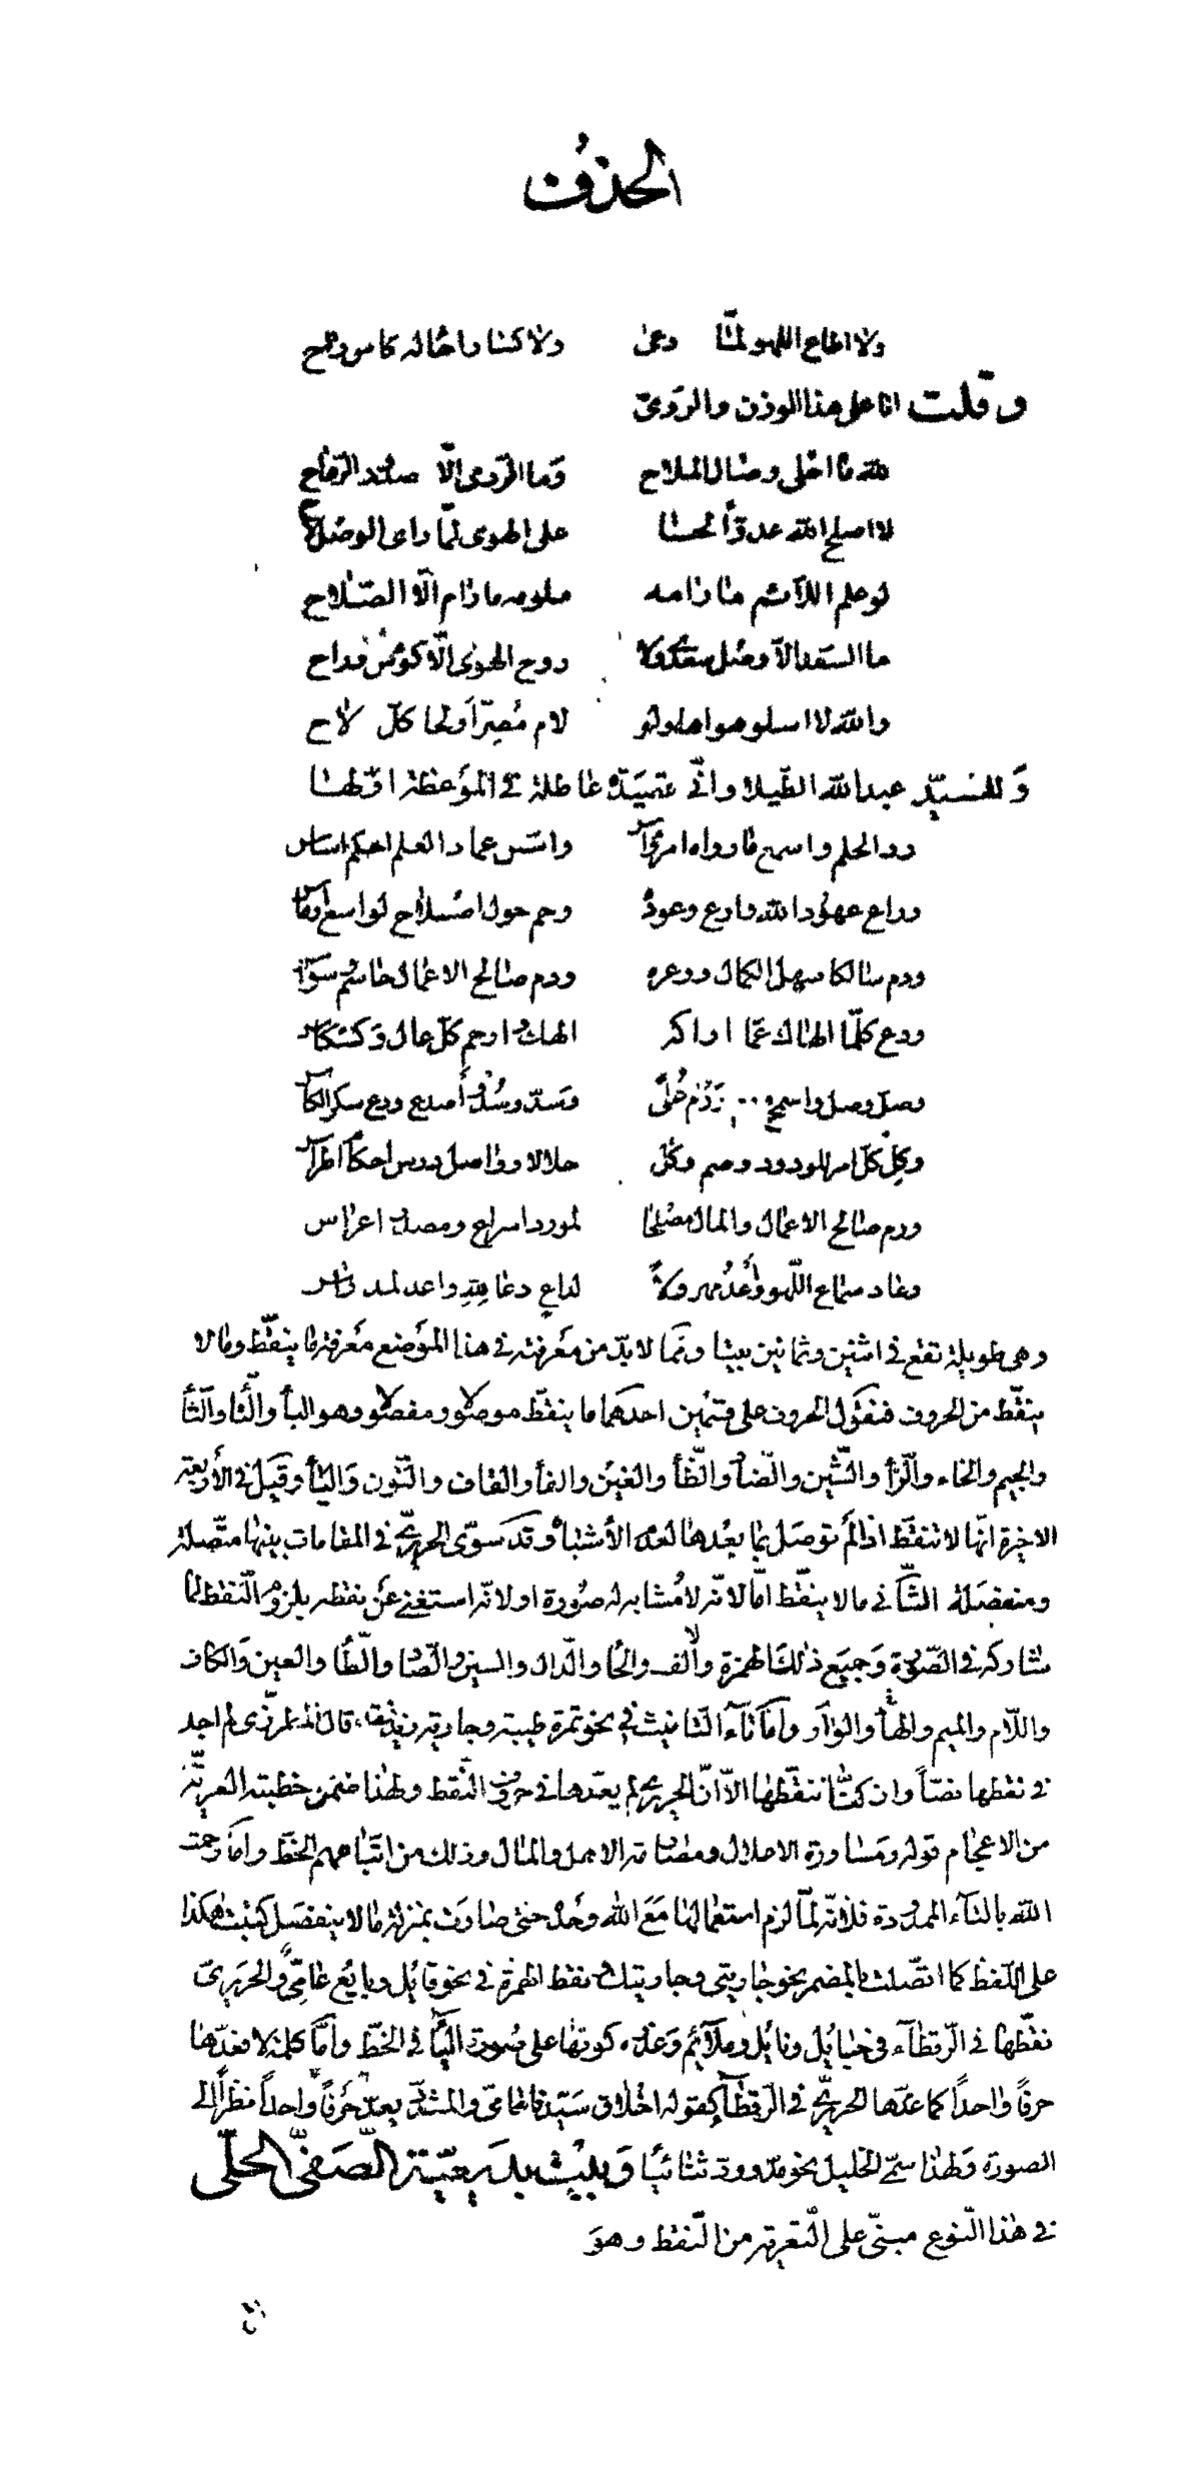 الحذف
ولا اطاع اللهو لمّا دعى ولا كسا راحاته كاس وراح
وقلت انا على هذا الوزن والروىّ
لله ما احلى وصال الملاح وما الرّدى الّا صدود الرّداح
لا اصلح الله عدوّا لحا على الهوى لمّا راى الوصل لاح
لو علم اللآئم ما رامه ملومه ما رام الّا الصّلاح
ما السعد الّا وصل ولا روح الهوى الّا كؤس وراح
والله لا اسلو هواها ولو لام مُصِرّاً ولحا كلّ لاح
وَللسيّد عبد الله الطّبلاوانّي قصيَدة عاطلة في المَوعظة اوّلها
رد الحلم واسمع ما رواه واسّس عماد العلم احكم اساس
وراع عهود الله وارع وعوده وحم حول اصلاح
ورم سالكا سهل الكمال ووعره ودم صالح الاعمال
ودع كلّما الهاك عمّا الهك وارحم كلّ عال وكسّ كاس
وصل وصل واسمح وسدّ وسُدْ أصدع ودع سكر الكاس
وكِلْ كلّ امر للودود وصم وصل حلالا وواصل درس
ورم صالح الاعمال والمال مصلحا لمورد اسراج ومصدر اعراس
وعاد سماع اللّهو لداعٍ دعا
وهى طويلة تقع في اثنين وثمانين بيتا وممّا لا بدّ من مَعرفته في هذا المَوضع مَعرفة ما ينقّط وما لا
ينقّط من الحروف فنقول الحروف على قسمَين احدهما ما ينقّط موصَلاً ومفصَلاً وهو البأ والتّأ والثّأ
والجيم والخاء والزّأ والشّين والضّاد والظّأ والغين والفأ والقاف والنّون وَاليأ وقيَل في الأربعة
الاخيرة انّها لا تنقّط اذا لم توصَل بما بعدها لعدم الأشتباه وقد سوّى الحريرىّ في المقامات بينها متّصلة
ومنفصَلة الثّانى ما لا ينقّط امّا لانّه لا مُشابه له صُورة او لانّه استغنى عَن نقطه بلزوم النّقط لما
شاركه في الصّورة وَجميع ذلك الهمزة والألف والحا والدّال والسين والصّاد والطّأ والعين وَالكاف
واللّام والميم والهأ والواو وامَّا تاء التّانيث في نحو تمرة طيبة وجارية قال المطرزى لم اجد
في نقطها نصّاً وان كنّا ننقّطها الّا انّ الحريرىّ لم يعدّها في حروف النّقط ولهذا ضمّن خطبته العريّة
من الاعجام قوله ومَساورة الاعلال ومصارمة الاهل والمال وذلك من اتّباعهم الخطّ وامّا رحمت
الله بالتاء الممدودة فلانّه لمّا لزم استعمالها مَعَ الله وحدَه حتى صارت بمنزلة ما لا ينفصَل كتبت هكذا
على اللّفظ كما اتّصلت بالمضمر نحو جاريتى وجاريتك ونقط الهمزة في نحو قائل وبايُع عامىّ والحريرىّ
نقّطها في الرّقطآء في خبايُل ونايُل وملآئم وَعلّته كونها على صُورة اليآ في الخطّ وامَّا كلمة لا فعدّها
حرفاً واحداً كما عدّها الحريرىّ في الرّقطآء كقوله اخلاق سَيّدنا والمشدّد يعدّ حَرفاً واحداً نظراً الى
الصورة وَلهذا سمّى الخليل نحو مدّ وردّ ثنائيًا وَبيْت بديعيّة الصّفىّ الحلّى
في هذا النّوع مبنىّ على التّعرية من النّقط وهوَ